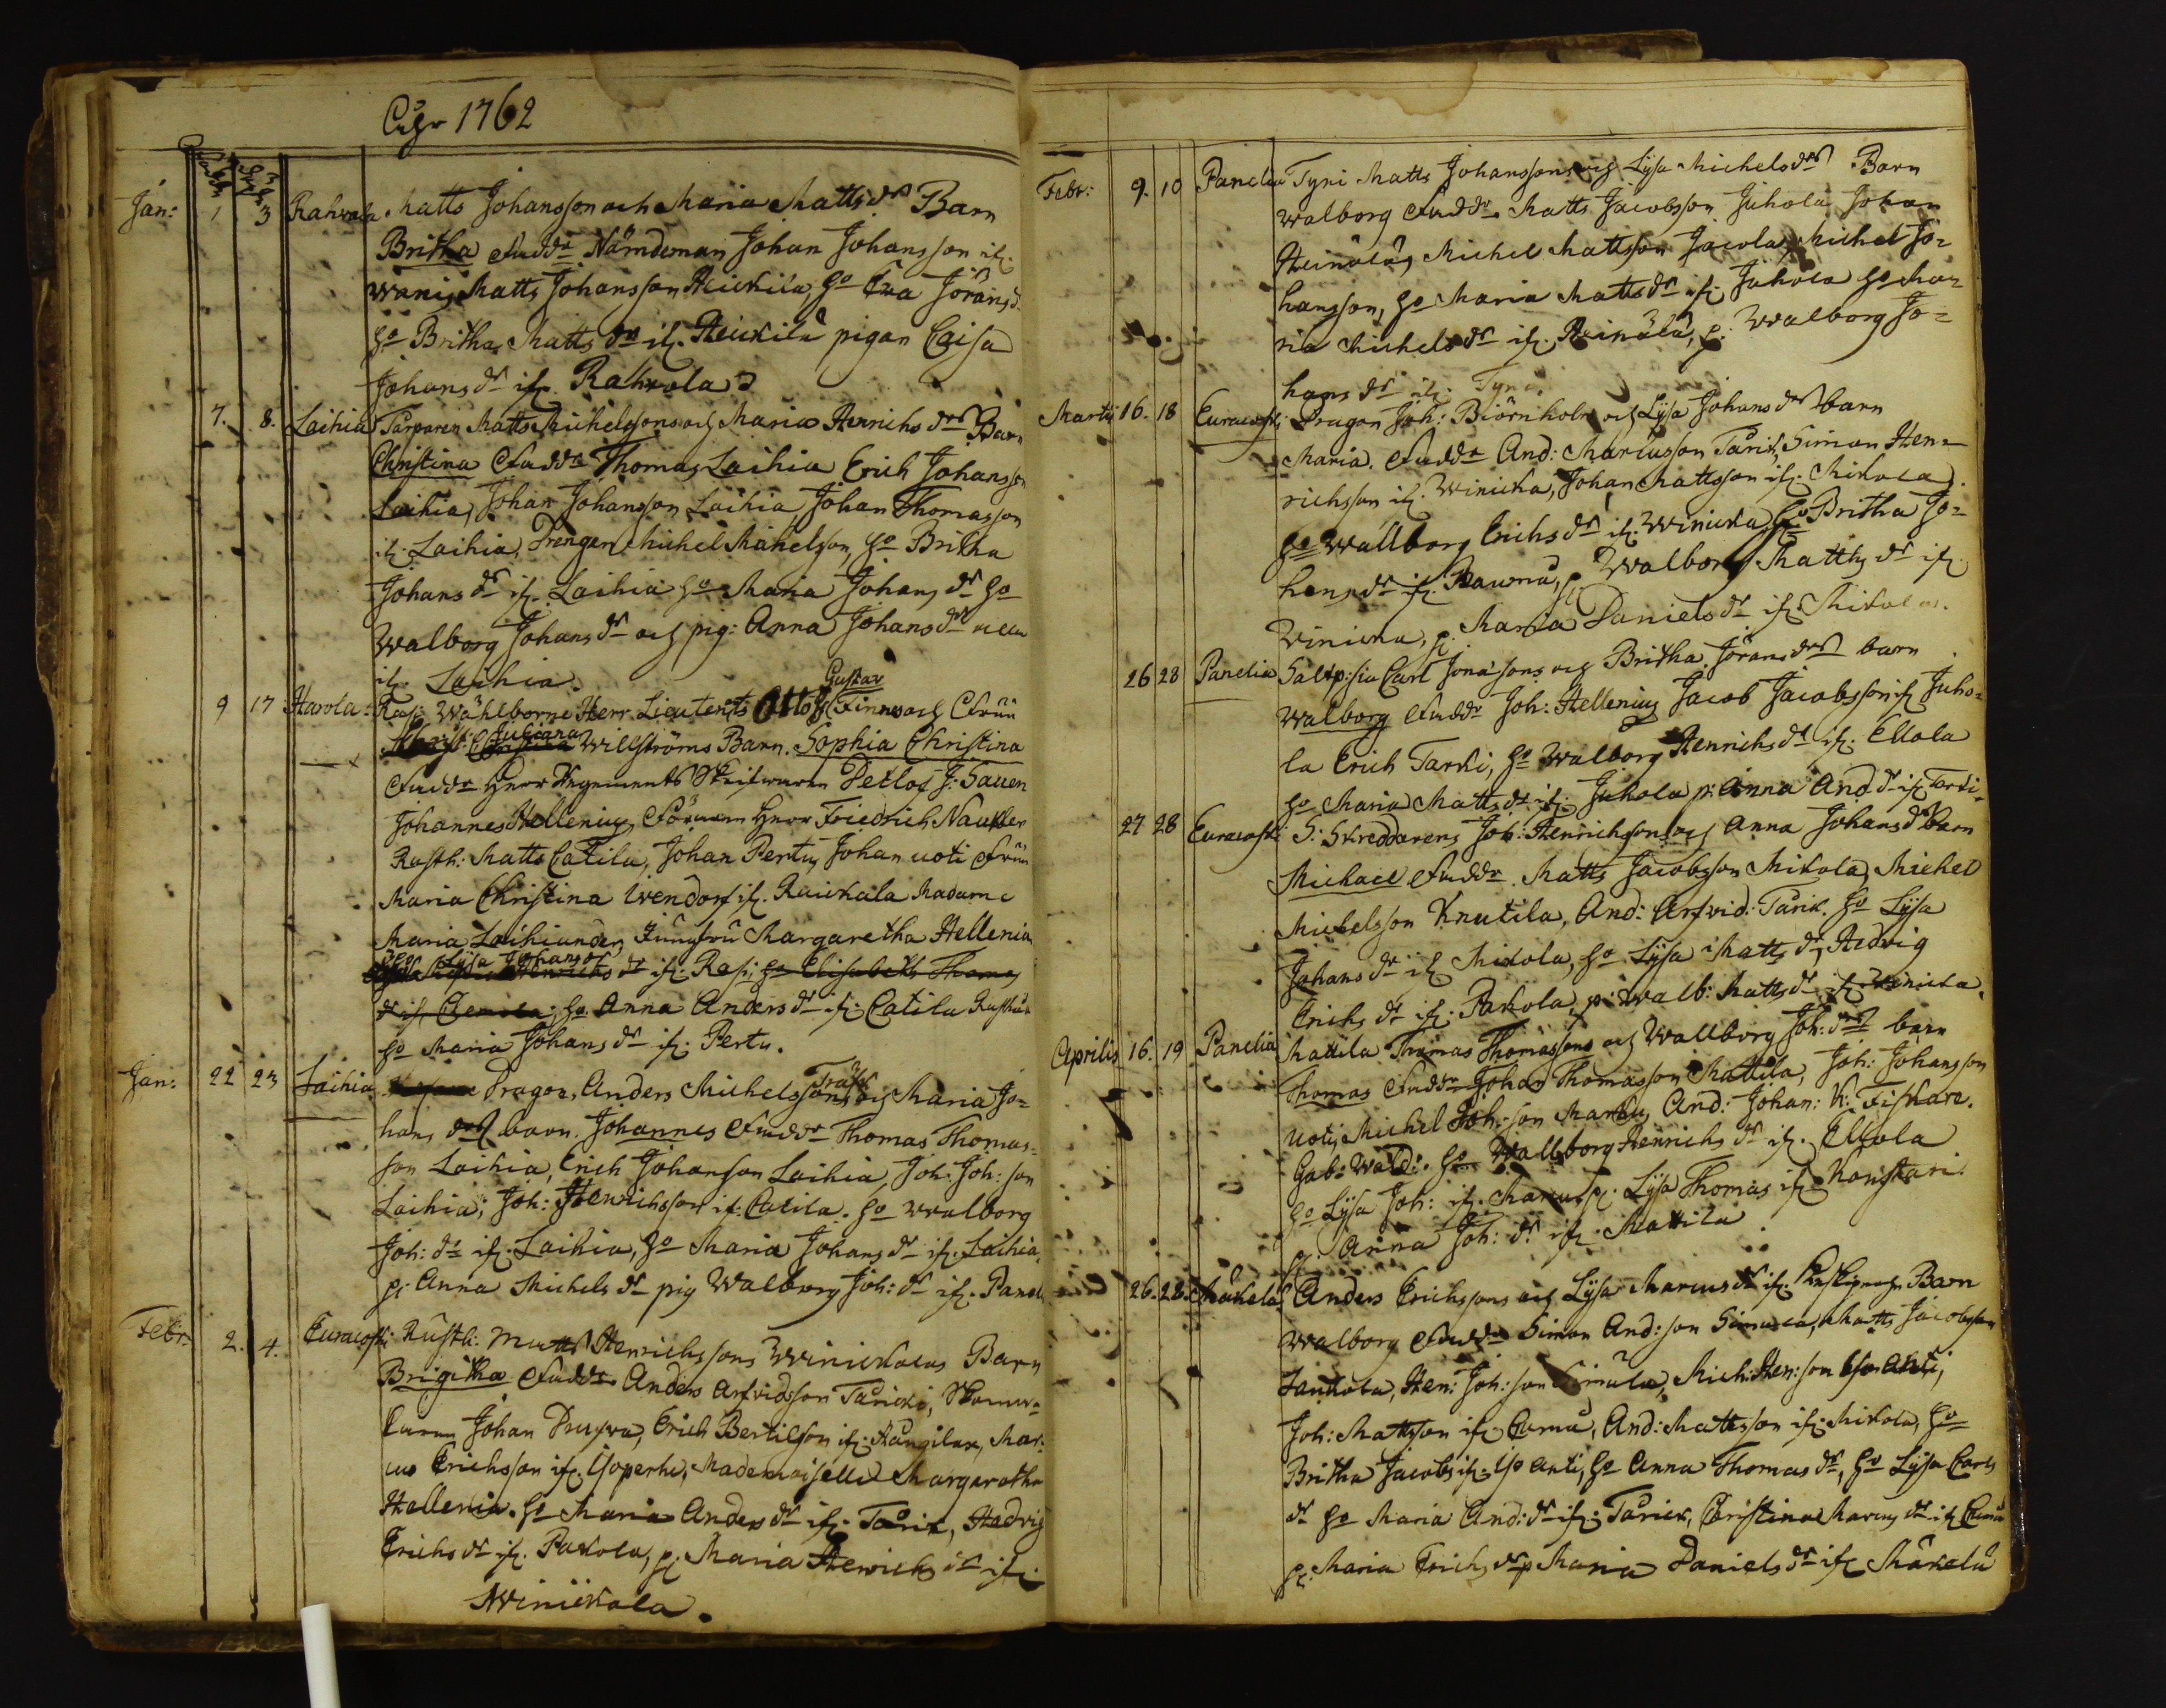 1762
Jan: 1 3 Rahvola Matts Johansson och Maria Matts drs Barn
Britha Faddr Nämdeman Johan Johansson if:
Wani, Matts Johansson Heickilä, ho Eva Jörans d:
ho Britha Matts dr if: Heickilä pigan Caisa
Johans dr if: Rahvola
7. 8. Laihia Matts Michelssons och Maria Henrichs drs Barn
Christina Faddr Thomas Laihia Erich Johansson
Laihia, Johan Johansson Laihia Johan Thomasson
if: Laihia, Drengen Michel Michelsson, ho Britha
Johans dr if: Laihia ho Maria Johans dr ho
Walborg Johans dr och pig: Anna Johans dr alla
if: Laihia.
Gustav
9 17 Harola: Wählborne Herr Lieutents Otto Finns och Fruu
Juliana
Willströms Barn. Sophia Christina
Faddr Herr Regements
Johannes Hellenius, Herr Friedrich
Rusth: Matts Catila, Johan Pertu, Johan uoti Fruu
Maria Christina if: Madame
Maria Jumfru Margaretha Hellenia
Lysa Johans dr
Henrichs dr if: ho Elisabeth Thomas
dr if: ho Anna Anders dr if: Catila
ho Maria Johans dr if: Pertu.
Träsk
Jan: 22 23 Laihia Dragon, Anders Michelssons och Maria Jo=
hans drs barn. Johannes Faddr Thomas Thomas=
son Laihia, Erich Johanson Laihia, Joh: Joh: son
Laihia, Joh: Henrichsson if: Catila. ho Walborg
Joh: dr if: Laihia, ho Maria Johans dr if: Laihia,
p: Anna Michels dr pig Walborg Joh: dr if: Panel
Febr. 2. 4. Euracoski Rusth: Matts Henrichssons Winickalas Barn
Brigitha Faddr Anders Arfvidsson Taricki,
Johan Erich Bertilson if: Mar=
cus Erichsson if: Mademoiselle Margaretha
Hellenia. ho Maria Anders dr if: Hedvig
Erichs dr if: Pakola, p: Maria Henrichs dr if:
Winickala.
Febr: 9. 10 Panelia Tyni Matts Johanssons och Lysa Michels drs Barn
Walborg Faddr Matts Jacobsson Juhola Johan
Heinälä, Michel Mattsson Jacola, Michel Jo=
hansson, ho Maria Matts dr if: Juhola ho Ma=
ria Michels dr if: Heinälä, p: Walborg Jo=
hans dr if: Tyni.
Martij 16. 18 Euracoski Dragon Joh: Biörnholm och Lysa Johans drs barn
Maria. Faddr And: Marcusson Tarik, Simon Hen=
richsson if: Winicka, Johan Mattsson if: Mikola.
ho Wallborg Erichs dr if: Winicka, ho Britha Jo=
hans dr if: p: Walborg Matts dr if:
Winicka, p: Maria Daniels dr if: Mikola.
26 28 Panelia Carl Jonasons och Britha Jörans drs barn
Walborg Faddr Joh: Hellenius Jacob Jacobsson if: Juho=
la Erich Tarki, ho Walborg Henrichs dr if: Ellola
ho Maria Matts dr if: Juhola p: Anna And. dr if: Tarki.
27 28 Euracoski S: Skreddarens Joh: Henrichsons och Anna Johans d: barn
Michael Faddr Matts Jacobsson Mikola, Michel
Michelsson Knutila, And: Arfvid: Tarik. ho Lysa
Johans dr if: Mikola, ho Lysa Matts dr, Hedvig
Erichs dr if: Pakola, p: Walb: Matts dr if: Winicka.
Aprilis 16. 19 Panelia Mattila Thomas Thomassons och Wallborg Joh: drs barn
Thomas Faddr Johan Thomasson Mattila, Joh: Johansson
Uoti, Michel Joh: son And: Johan: K: Fiskare.
Gab: Wald: ho Wallborg Henrichs dr if: Ellola
ho Lysa Joh: if: p: Lysa Thomas if: Konstari
p: Anna Joh: dr if: Mattila
26. 28. Mäkelä Anders Erichssons och Lysa Marcus dr if: Barn
Walborg Faddr Simon And: son Simula, Matts Jacobsson
Hen: Joh: son Simula, Mich: Hen: son Iso Anti,
Joh: Mattsson if: And: Mattsson if: Mikola, ho
Britha Jacobs if: Iso Anti, ho Anna Thomas dr, ho Lysa Carls
dr ho Maria And: dr if: Tarick, Christina Marcus dr if:
p: Maria Erichs dr p Maria Daniels dr if: Mäkelä